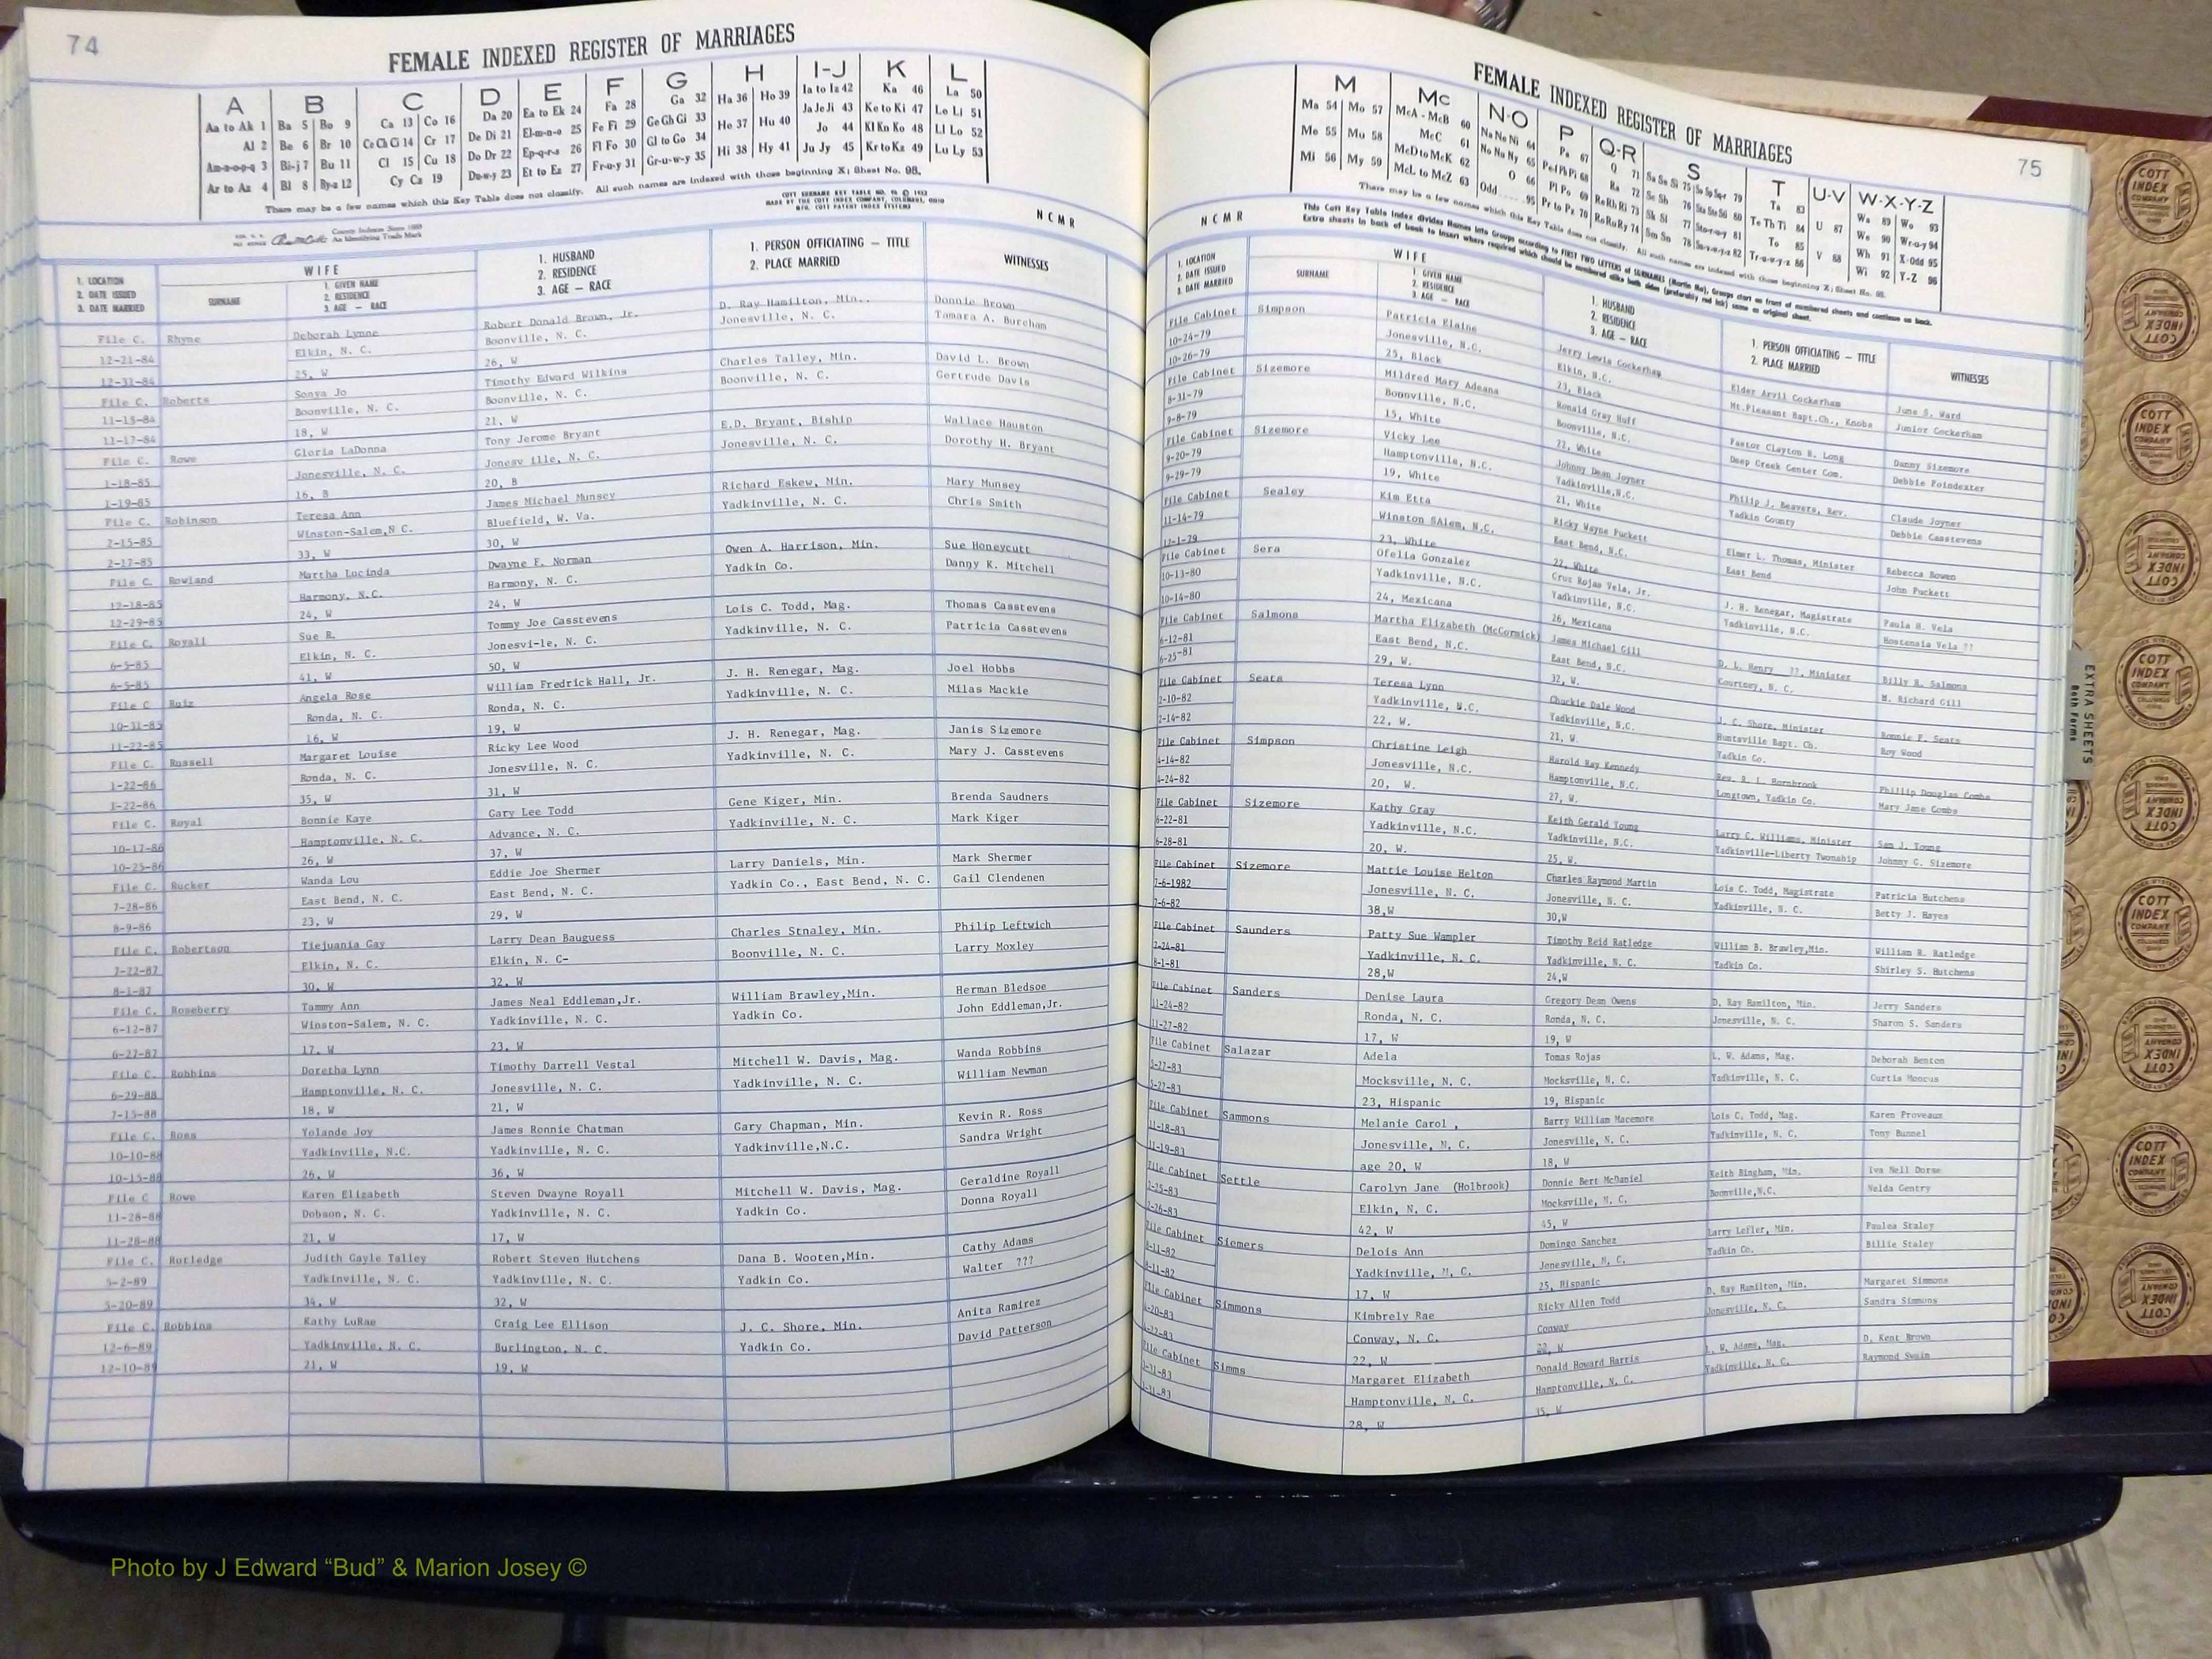 74
FEMALE INDEXED REGISTER OF MARRIAGES
A B C D E F G H I-J K L
Aa to Ak 1 Ba 5 Bo 9 Ca 13 Co 16 Da 20 Ea to Ek 24 Fa 28 Ga 32 Ha 36 Ho 39 Ia to Iz 42 Ka 46 La 50
Al 2 Be 6 Br 10 Ce Ch Ci 14 Cr 17 De Di 21 El-m-n-o 25 Fe Fi 29 Ge Gh Gi 33 He 37 Hu 40 Ja Je Ji 43 Ke to Ki 47 Le Li 51
Am-n-o-p-q 3 Bi-j 7 Bu 11 Cl 15 Cu 18 Do Dr 22 Ep-q-r-s 26 Fl Fo 30 Gl to Go 34 Hi 38 Hy 41 Jo 44 Kl Kn Ko 48 Ll Lo 52
Ar to Az 4 Bl 8 By-z 12 Cy Cz 19 Du-w-y 23 Et to Ez 27 Fr-u-y 31 Gr-u-w-y 35 Ju Jy 45 Kr to Kz 49 Lu Ly 53
There may be a few names which this Key Table does not classify. All such names are indexed with those beginning X; Sheet No. 95.
County Indexes Since 1888
An Identifying Trade Mark
MADE BY THE COTT INDEX COMPANY, COLUMBUS, OHIO
N C M R
1. LOCATION
2. DATE ISSUED
3. DATE MARRIED
WIFE
SURNAME
1. GIVEN NAME
2. RESIDENCE
3. AGE — RACE
1. HUSBAND
2. RESIDENCE
3. AGE — RACE
1. PERSON OFFICIATING — TITLE
2. PLACE MARRIED
WITNESSES
File C. Rhyne Deborah Lynne Robert Donald Brown, Jr. D. Ray Hamilton, Min. Donnie Brown
12-21-84 Elkin, N. C. Boonville, N. C. Jonesville, N. C. Tamara A. Burcham
12-31-84 25, W 26, W
File C. Roberts Sonya Jo Timothy Edward Wilkins Charles Talley, Min. David L. Brown
11-15-84 Boonville, N. C. Boonville, N. C. Boonville, N. C. Gertrude Davis
11-17-84 18, W 21, W
File C. Rowe Gloria LaDonna Tony Jerome Bryant E.D. Bryant, Biship Wallace Hauston
1-18-85 Jonesville, N. C. Jonesv ille, N. C. Jonesville, N. C. Dorothy H. Bryant
1-19-85 16, B 20, B
File C. Robinson Teresa Ann James Michael Munsey Richard Eskew, Min. Mary Munsey
2-15-85 Winston-Salem,N C. Bluefield, W. Va. Yadkinville, N. C. Chris Smith
2-17-85 33, W 30, W
File C. Rowland Martha Lucinda Dwayne F. Norman Owen A. Harrison, Min. Sue Honeycutt
12-18-85 Harmony, N.C. Harmony, N. C. Yadkin Co. Danny K. Mitchell
12-29-85 24, W 24, W
File C. Royall Sue R. Tommy Joe Casstevens Lois C. Todd, Mag. Thomas Casstevens
6-5-85 Elkin, N. C. Jonesvi-lle, N. C. Yadkinville, N. C. Patricia Casstevens
6-5-85 41, W 50, W
File C Ruiz Angela Rose William Fredrick Hall, Jr. J. H. Renegar, Mag. Joel Hobbs
10-31-85 Ronda, N. C. Ronda, N. C. Yadkinville, N. C. Milas Mackie
11-22-85 16, W 19, W
File C. Russell Margaret Louise Ricky Lee Wood J. H. Renegar, Mag. Janis Sizemore
1-22-86 Ronda, N. C. Jonesville, N. C. Yadkinville, N. C. Mary J. Casstevens
1-22-86 35, W 31, W
File C. Royal Bonnie Kaye Gary Lee Todd Gene Kiger, Min. Brenda Saudners
10-17-86 Hamptonville, N. C. Advance, N. C. Yadkinville, N. C. Mark Kiger
10-25-86 26, W 37, W
File C. Rucker Wanda Lou Eddie Joe Shermer Larry Daniels, Min. Mark Shermer
7-28-86 East Bend, N. C. East Bend, N. C. Yadkin Co., East Bend, N. C. Gail Clendenen
8-9-86 23, W 29, W
File C. Robertson Tiejuania Gay Larry Dean Bauguess Charles Stnaley, Min. Philip Leftwich
7-22-87 Elkin, N. C. Elkin, N. C- Boonville, N. C. Larry Moxley
8-1-87 30, W 32, W
File C. Roseberry Tammy Ann James Neal Eddleman,Jr. William Brawley,Min. Herman Bledsoe
6-12-87 Winston-Salem, N. C. Yadkinville, N. C. Yadkin Co. John Eddleman,Jr.
6-27-87 17, W 23, W
File C. Robbins Doretha Lynn Timothy Darrell Vestal Mitchell W. Davis, Mag. Wanda Robbins
6-29-88 Hamptonville, N. C. Jonesville, N. C. Yadkinville, N. C. William Newman
7-15-88 18, W 21, W
File C. Ross Yolande Joy James Ronnie Chatman Gary Chapman, Min. Kevin R. Ross
10-10-88 Yadkinville, N.C. Yadkinville, N. C. Yadkinville,N.C. Sandra Wright
10-15-88 26, W 36, W
File C Rowe Karen Elizabeth Steven Dwayne Royall Mitchell W. Davis, Mag. Geraldine Royall
11-28-88 Dobson, N. C. Yadkinville, N. C. Yadkin Co. Donna Royall
11-28-88 21, W 17, W
File C. Rutledge Judith Gayle Talley Robert Steven Hutchens Dana B. Wooten,Min. Cathy Adams
5-2-89 Yadkinville, N. C. Yadkinville, N. C. Yadkin Co. Walter ???
5-20-89 34, W 32, W
File C. Robbins Kathy LuRae Craig Lee Ellison J. C. Shore, Min. Anita Ramirez
12-6-89 Yadkinville, N. C. Burlington, N. C. Yadkin Co. David Patterson
12-10-89 21, W 19, W
75
FEMALE INDEXED REGISTER OF MARRIAGES
M Mc N-O P Q-R S T U-V W-X-Y-Z
Ma 54 Mo 57 McA - McB 60 Na Ne Ni 64 Pa 67 Q 71 Sa Se Si 75 Ta 83 U 87 Wa 89 Wo 93
Me 55 Mu 58 McC 61 No Nu Ny 65 Pe Pf Ph Pi 68 Ra 72 Sc Sh 76 Te Th Ti 84 V 88 We 90 Wr-u-y 94
Mi 56 My 59 McD to McK 62 O 66 Pl Po 69 Re Rh Ri 73 Sk Sl 77 To 85 Wh 91 X-Odd 95
McL to McZ 63 Odd 95 Pr to Pz 70 Ro Ru Ry 74 Sm Sn 78 Tr-u-w-y-z 86 Wi 92 Y-Z 96
There may be a few names which this Key Table does not classify. All such names are indexed with those beginning X; Sheet No. 95.
N C M R
This Cott Key Table Index divides Names into Groups according to FIRST TWO LETTERS of SURNAMES (Martin Ma), Groups start on front of numbered sheets and continue on back.
Extra sheets in back of book to insert where required which should be numbered alike both sides (preferably red ink) same as original sheet.
1. LOCATION
2. DATE ISSUED
3. DATE MARRIED
WIFE
SURNAME
1. GIVEN NAME
2. RESIDENCE
3. AGE — RACE
1. HUSBAND
2. RESIDENCE
3. AGE — RACE
1. PERSON OFFICIATING — TITLE
2. PLACE MARRIED
WITNESSES
File Cabinet Simpson Patricia Elaine Jerry Lewis Cockerham Elder Arvil Cockerham June S. Ward
10-24-79 Jonesville, N.C. Elkin, N.C. Mt.Pleasant Bapt.Ch., Knobs Junior Cockerham
10-26-79 25, Black 23, Black
File Cabinet Sizemore Mildred Mary Adeana Ronald Gray Huff Pastor Clayton H. Long Danny Sizemore
8-31-79 Boonville, N.C. Boonville, N.C. Deep Creek Center Com. Debbie Poindexter
9-8-79 15, White 22, White
File Cabinet Sizemore Vicky Lee Johnny Dean Joyner Philip J. Beavers, Rev. Claude Joyner
9-20-79 Hamptonville, N.C. Yadkinville,N.C. Yadkin County Debbie Casstevens
9-29-79 19, White 21, White
File Cabinet Sealey Kim Etta Ricky Wayne Puckett Elmer L. Thomas, Minister Rebecca Bowen
11-14-79 Winston SAlem, N.C. East Bend, N.C. East Bend John Puckett
12-1-79 23, White 22, White
File Cabinet Sera Ofelia Gonzalez Cruz Rojas Vela, Jr. J. H. Renegar, Magistrate Paula H. Vela
10-13-80 Yadkinville, N.C. Yadkinville, N.C. Yadkinville, N.C. Hostensia Vela ??
10-14-80 24, Mexicana 26, Mexicana
File Cabinet Salmons Martha Elizabeth (McCormick) James Michael Gill D. L. Henry ??, Minister Billy R. Salmons
6-12-81 East Bend, N.C. East Bend, N.C. Courtney, N. C. M. Richard Gill
6-25-81 29, W. 32, W.
File Cabinet Seats Teresa Lynn Chuckie Dale Wood J. C. Shore, Minister Ronnie F. Seats
2-10-82 Yadkinville, N.C. Yadkinville, N.C. Huntsville Bapt. Ch. Roy Wood
2-14-82 22, W. 21, W. Yadkin Co.
File Cabinet Simpson Christine Leigh Harold Ray Kennedy Rev. R. L. Hornbrook Phillip Douglas Combs
4-14-82 Jonesville, N.C. Hamptonville, N.C. Longtown, Yadkin Co. Mary Jane Combs
4-24-82 20, W. 27, W.
File Cabinet Sizemore Kathy Gray Keith Gerald Young Larry C. Williams, Minister Sam J. Young
6-22-81 Yadkinville, N.C. Yadkinville, N.C. Yadkinville-Liberty Twonship Johnny G. Sizemore
6-28-81 20, W. 25, W.
File Cabinet Sizemore Mattie Louise Helton Charles Raymond Martin Lois C. Todd, Magistrate Patricia Hutchens
7-6-1982 Jonesville, N. C. Jonesville, N. C. Yadkinville, N. C. Betty J. Hayes
7-6-82 38,W 30,W
File Cabinet Saunders Patty Sue Wampler Timothy Reid Ratledge William B. Brawley,Min. William R. Ratledge
7-24-81 Yadkinville, N. C. Yadkinville, N. C. Yadkin Co. Shirley S. Hutchens
8-1-81 28,W 24,W
File Cabinet Sanders Denise Laura Gregory Dean Owens D. Ray Hamilton, Min. Jerry Sanders
11-24-82 Ronda, N. C. Ronda, N. C. Jonesville, N. C. Sharon S. Sanders
11-27-82 17, W 19, W
File Cabinet Salazar Adela Tomas Rojas L. W. Adams, Mag. Deborah Benton
5-27-83 Mocksville, N. C. Mocksville, N. C. Yadkinville, N. C. Curtis Moocus
5-27-83 23, Hispanic 19, Hispanic
File Cabinet Sammons Melanie Carol , Barry William Macemore Lois C. Todd, Mag. Karen Proveaux
11-18-83 Jonesville, N. C. Jonesville, N. C. Yadkinville, N. C. Tony Bunnel
11-19-83 age 20, W 18, W
File Cabinet Settle Carolyn Jane (Holbrook) Donnie Bert McDaniel Keith Bingham, Min. Iva Nell Dorse
2-25-83 Elkin, N. C. Mocksville, N. C. Boonville,N.C. Nelda Gentry
2-26-83 42, W 45, W
File Cabinet Siemers Delois Ann Domingo Sanchez Larry Lefler, Min. Paulea Staley
-11-82 Yadkinville, N. C. Jonesville, N. C. Yadkin Co. Billie Staley
-11-82 17, W 25, Hispanic
File Cabinet Simmons Kimbrely Rae Ricky Allen Todd D. Ray Hamilton, Min. Margaret Simmons
-20-83 Conway, N. C. Conway Jonesville, N. C. Sandra Simmons
-22-83 22, W W
File Cabinet Simms Margaret Elizabeth Donald Howard Harris L. W. Adams, Mag. D. Kent Brown
-31-83 Hamptonville, N. C. Hamptonville, N. C. Yadkinville, N. C. Raymond Swain
-31-83 28, W 35, W
EXTRA SHEETS
Both Forms
COTT INDEX COMPANY
Photo by J Edward “Bud” & Marion Josey ©